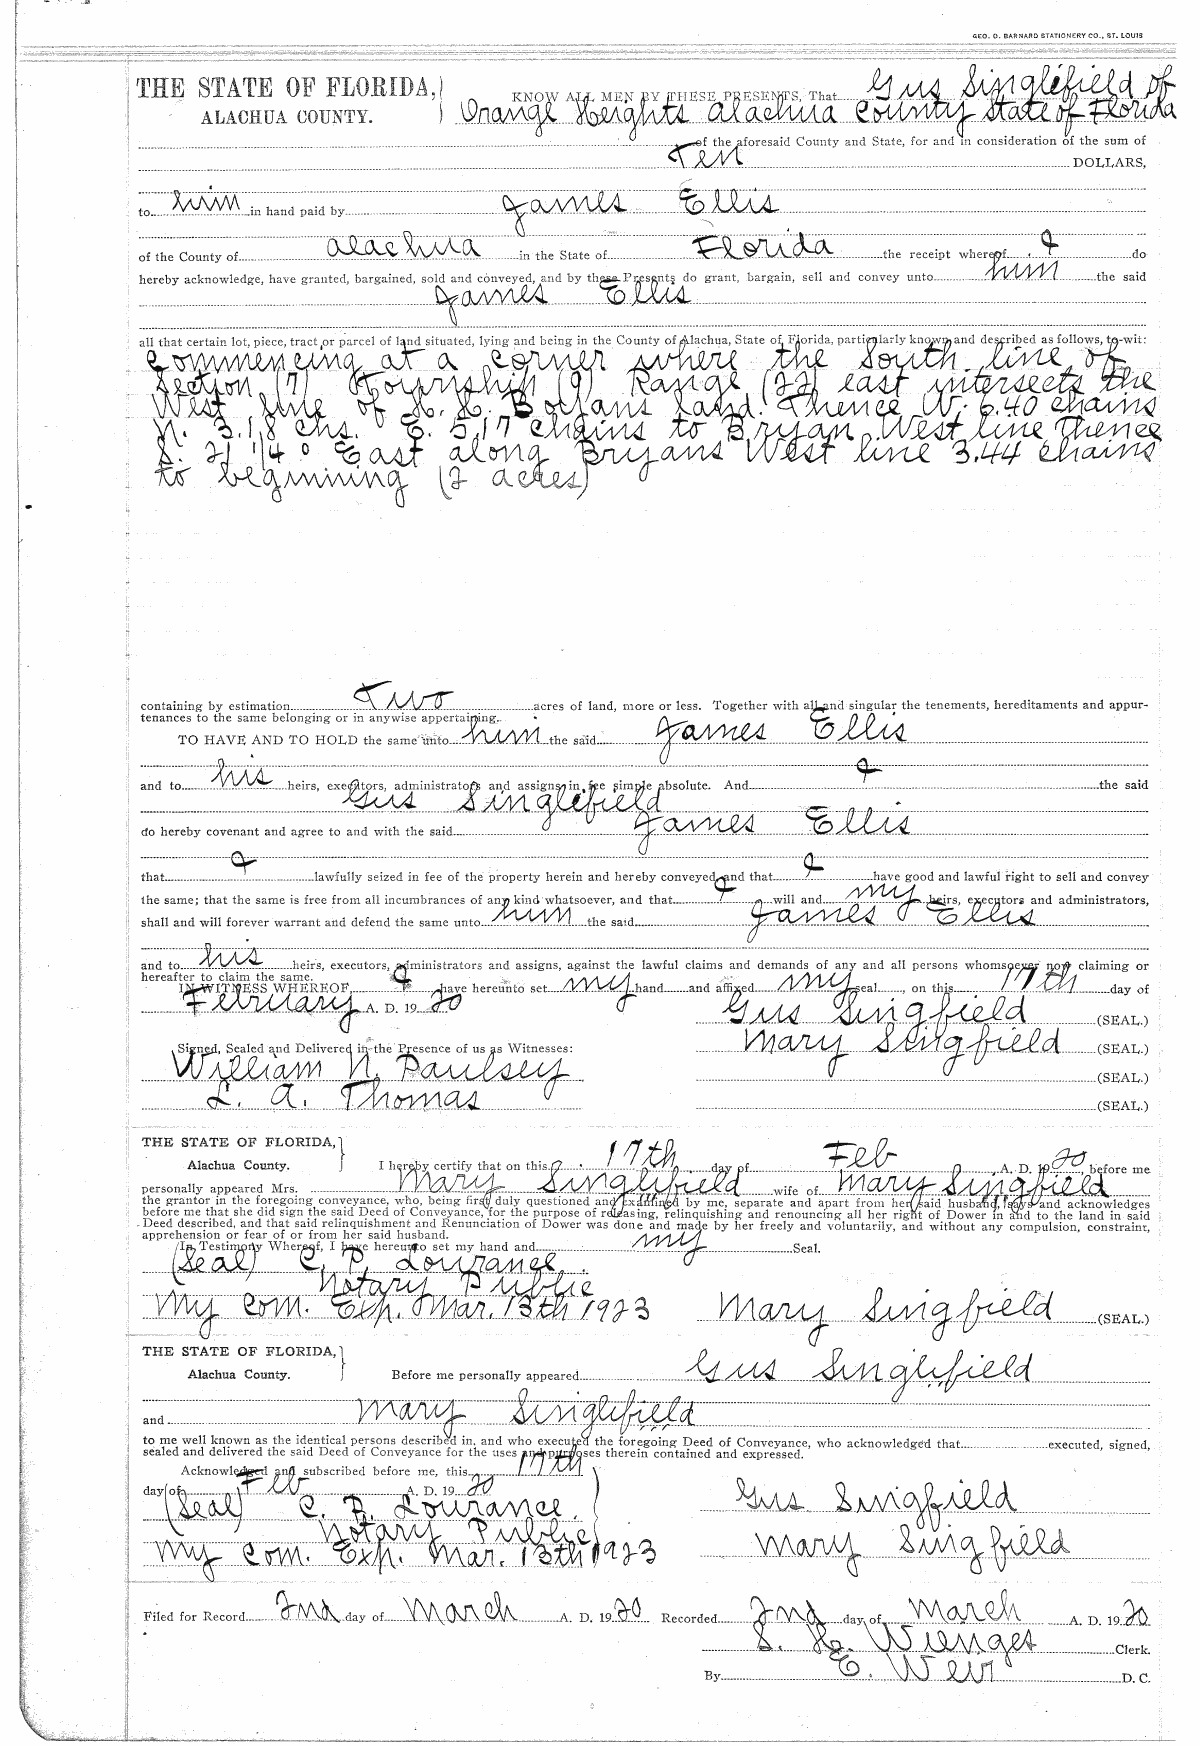 GEO. D. BARNARD STATIONERY CO., ST. LOUIS
THE STATE OF FLORIDA,
ALACHUA COUNTY.
KNOW ALL MEN BY THESE PRESENTS, That Gus Singlefield of
Orange Heights Alachua County State of Florida
of the aforesaid County and State, for and in consideration of the sum of
Ten DOLLARS,
to him in hand paid by James Ellis
of the County of Alachua in the State of Florida the receipt whereof I do
hereby acknowledge, have granted, bargained, sold and conveyed, and by these Presents do grant, bargain, sell and convey unto him the said
James Ellis
all that certain lot, piece, tract or parcel of land situated, lying and being in the County of Alachua, State of Florida, particularly known and described as follows, to-wit:
Commencing at a corner where the South line of
Section (7) Township (9) Range (22) east intersects the
West line of Bryans land. Thence W. 6.40 chains
N. 3.18 chs. E. 5.17 chains to Bryan West line Thence
S. 21 1/4° East along Bryans West line 3.44 chains
to beginning (2 acres)
containing by estimation Two acres of land, more or less. Together with all and singular the tenements, hereditaments and appur-
tenances to the same belonging or in anywise appertaining.
TO HAVE AND TO HOLD the same unto him the said James Ellis
and to his heirs, executors, administrators and assigns in fee simple absolute. And I the said
Gus Singlefield
do hereby covenant and agree to and with the said James Ellis
that I lawfully seized in fee of the property herein and hereby conveyed and that I have good and lawful right to sell and convey
the same; that the same is free from all incumbrances of any kind whatsoever, and that I will and my heirs, executors and administrators,
shall and will forever warrant and defend the same unto him the said James Ellis
and to his heirs, executors, administrators and assigns, against the lawful claims and demands of any and all persons whomsoever now claiming or
hereafter to claim the same.
IN WITNESS WHEREOF I have hereunto set my hand and affixed my seal, on this 17th day of
February A. D. 1920 Gus Singfield (SEAL.)
Mary Singfield (SEAL.)
Signed, Sealed and Delivered in the Presence of us as Witnesses:
William N. Paulsey (SEAL.)
L. A. Thomas (SEAL.)
THE STATE OF FLORIDA,
Alachua County. I hereby certify that on this 17th day of Feb A. D. 1920 before me
personally appeared Mrs. Mary Singlifield wife of Mary Singfield
the grantor in the foregoing conveyance, who, being first duly questioned and examined by me, separate and apart from her said husband, says and acknowledges
before me that she did sign the said Deed of Conveyance, for the purpose of releasing, relinquishing and renouncing all her right of Dower in and to the land in said
Deed described, and that said relinquishment and Renunciation of Dower was done and made by her freely and voluntarily, and without any compulsion, constraint,
apprehension or fear of or from her said husband.
In Testimony Whereof, I have hereunto set my hand and my Seal.
(Seal) C. P. Lourance
Notary Public
My Com. Exp. Mar. 13th 1923 Mary Singfield (SEAL.)
THE STATE OF FLORIDA,
Alachua County. Before me personally appeared Gus Singlifield
and Mary Singlifield
to me well known as the identical persons described in, and who executed the foregoing Deed of Conveyance, who acknowledged that executed, signed,
sealed and delivered the said Deed of Conveyance for the uses and purposes therein contained and expressed.
Acknowledged and subscribed before me, this 17th
day of Feb A. D. 1920
(Seal) C. P. Lourance Gus Singfield
Notary Public
My Com. Exp. Mar. 13th 1923 Mary Singfield
Filed for Record 2nd day of March A. D. 1920 Recorded 2nd day of March A. D. 1920
S. H. Wienges Clerk.
By E. Weir D. C.